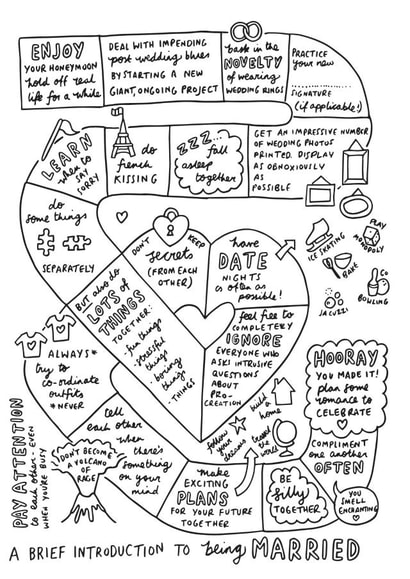 ENJOY
YOUR HONEYMOON
hold off real
life for a while
DEAL WITH IMPENDING
post wedding blues
BY STARTING A NEW
GIANT, ONGOING PROJECT
bask in the
NOVELTY
of wearing
WEDDING RINGS
PRACTICE
your new
..............
SIGNATURE
(if applicable!)
GET AN IMPRESSIVE NUMBER
OF WEDDING PHOTOS
PRINTED. DISPLAY
AS OBNOXIOUSLY
AS
POSSIBLE
ZZZ...
fall
asleep
together
do
french
KISSING
LEARN
when to
SAY
SORRY
do
some things
SEPARATELY
ALWAYS*
try to
co-ordinate
outfits
*NEVER
BUT also do
LOTS of
THINGS
TOGETHER.
· fun things
· stressful
things
· boring
things
· THINGS
DON'T KEEP
secrets
(FROM EACH
OTHER)
have
DATE
NIGHTS
as often as
possible!
ICE SKATING
PLAY
MONOPOLY
BAKE
GO
BOWLING
JACUZZI
feel free to
COMPLETELY
IGNORE
EVERYONE WHO
ASKS INTRUSIVE
QUESTIONS
ABOUT
PRO-
CREATION
tell
each other
when
there's
something
on your
mind
DON'T BECOME
A VOLCANO
OF
RAGE
PAY ATTENTION
to each other - EVEN
WHEN YOU'RE BUSY
make
EXCITING
PLANS
FOR YOUR FUTURE
TOGETHER
follow
your
dreams
build a
home
travel the
world
BE
silly
TOGETHER
COMPLIMENT
one another
OFTEN
YOU
SMELL
ENCHANTING
HOORAY
YOU MADE IT!
plan some
romance to
CELEBRATE
A BRIEF INTRODUCTION TO being MARRIED